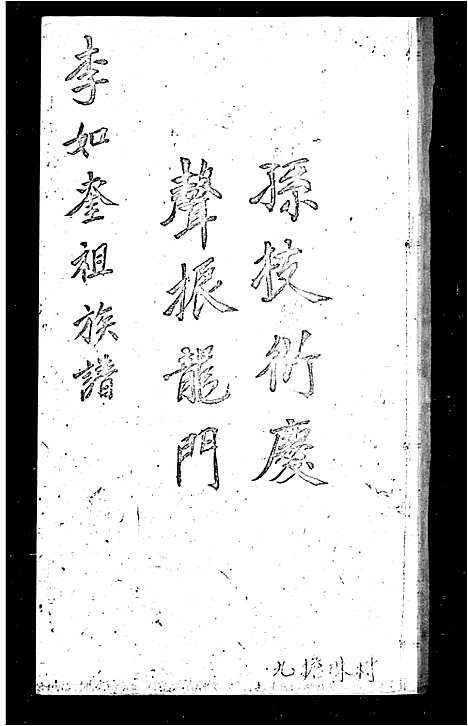 孫枝衍慶
聲振龍門
李如奎祖族譜
九 林村